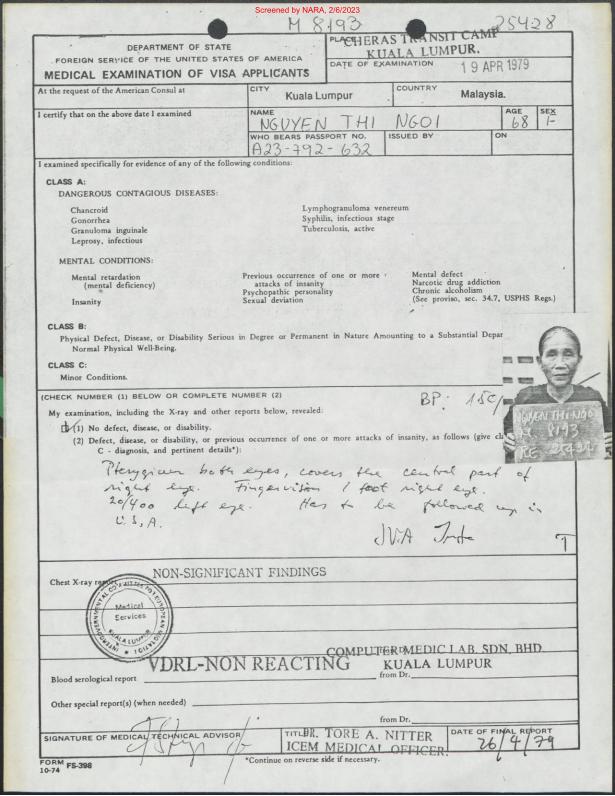 Screened by NARA, 2/6/2023
M 8193
25428
DEPARTMENT OF STATE
FOREIGN SERVICE OF THE UNITED STATES OF AMERICA
MEDICAL EXAMINATION OF VISA APPLICANTS
PLACE
CHERAS TRANSIT CAMP
KUALA LUMPUR.
DATE OF EXAMINATION
19 APR 1979
At the request of the American Consul at
CITY
Kuala Lumpur
COUNTRY
Malaysia.
I certify that on the above date I examined
NAME
NGUYEN THI NGOI
AGE
68
SEX
F
WHO BEARS PASSPORT NO.
A23-792-632
ISSUED BY
ON
I examined specifically for evidence of any of the following conditions:
CLASS A:
DANGEROUS CONTAGIOUS DISEASES:
Chancroid
Gonorrhea
Granuloma inguinale
Leprosy, infectious
Lymphogranuloma venereum
Syphilis, infectious stage
Tuberculosis, active
MENTAL CONDITIONS:
Mental retardation
(mental deficiency)
Insanity
Previous occurrence of one or more
attacks of insanity
Psychopathic personality
Sexual deviation
Mental defect
Narcotic drug addiction
Chronic alcoholism
(See proviso, sec. 34.7, USPHS Regs.)
CLASS B:
Physical Defect, Disease, or Disability Serious in Degree or Permanent in Nature Amounting to a Substantial Depar
Normal Physical Well-Being.
CLASS C:
Minor Conditions.
NGUYEN THI NGOI
8193
25428
(CHECK NUMBER (1) BELOW OR COMPLETE NUMBER (2)
BP:
My examination, including the X-ray and other reports below, revealed:
(1) No defect, disease, or disability.
(2) Defect, disease, or disability, or previous occurrence of one or more attacks of insanity, as follows (give cl
C - diagnosis, and pertinent details*):
Pterygium both eyes, covers the central part of
right eye. Fingervision 1 foot right eye.
20/400 left eye. Has to be followed up in
U.S.A.
Chest X-ray report
NON-SIGNIFICANT FINDINGS
INTERGOVERNMENTAL COMMITTEE FOR EUROPEAN MIGRATION
Medical
Services
KUALA LUMPUR
COMPUTER MEDIC LAB. SDN. BHD
VDRL-NON REACTING
KUALA LUMPUR
Blood serological report
from Dr.
Other special report(s) (when needed)
from Dr.
SIGNATURE OF MEDICAL TECHNICAL ADVISOR
TITLE
DR. TORE A. NITTER
ICEM MEDICAL OFFICER.
DATE OF FINAL REPORT
26/4/79
FORM FS-398
10-74
*Continue on reverse side if necessary.